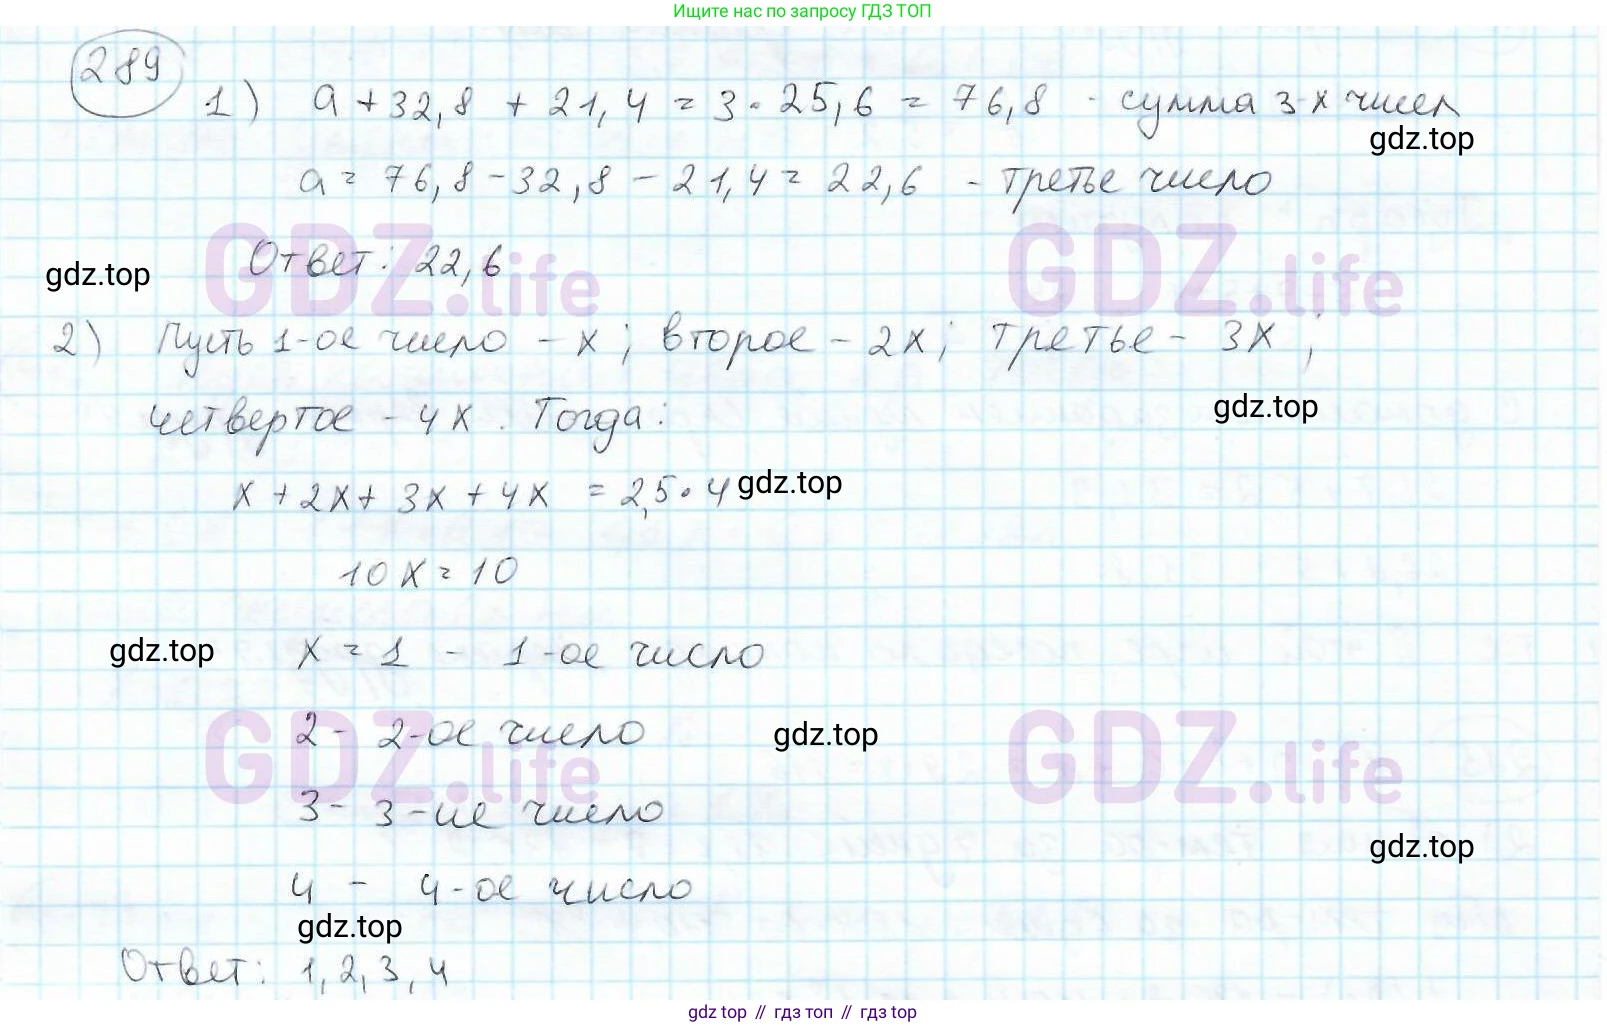 Ищите нас по запросу ГДЗ ТОП
289
1) a + 32,8 + 21,4 = 3 · 25,6 = 76,8 - сумма 3-х чисел
gdz.top
a = 76,8 - 32,8 - 21,4 = 22,6 - третье число
GDZ.life GDZ.life
Ответ: 22,6
gdz.top
2) Пусть 1-ое число - x ; второе - 2x; третье - 3x ;
gdz.top
четвертое - 4x . Тогда:
x + 2x + 3x + 4x = 2,5 · 4
gdz.top
10x = 10
gdz.top
x = 1 - 1-ое число
2 - 2-ое число
gdz.top
GDZ.life GDZ.life
3 - 3-ие число
gdz.top
4 - 4-ое число
gdz.top
Ответ: 1, 2, 3, 4
gdz top // гдз топ // гдз top